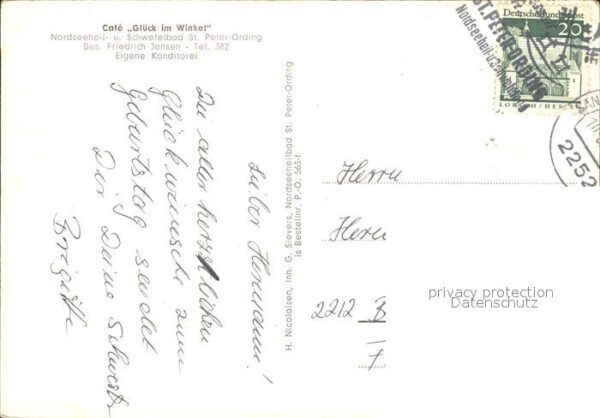 Café „Glück im Winkel"
Nordseeheil- u. Schwefelbad St. Peter-Ording
Bes. Friedrich Jensen - Tel. 382
Eigene Konditorei
Lieber Hermann!
Die aller herzlichen
Glückwünsche zum
Geburtstag sendet
Dir Deine Schwester
Brigitte
H. Nicolaisen, Inh. G. Sievers, Nordseeheilbad St. Peter-Ording
is Bestellnr. P.-O. 563-f
Deutsche Bundespost
20
LORSCH/HESSEN
ST. PETER-ORDING
Nordseeheil- u. Schwefelbad
2252
Herrn
Herrn
2212 B
privacy protection
Datenschutz